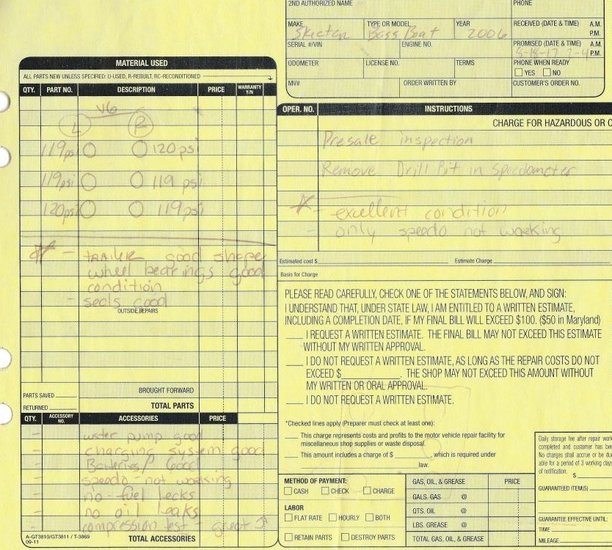 2ND AUTHORIZED NAME PHONE
MAKE TYPE OR MODEL YEAR RECEIVED (DATE & TIME) A.M.
Skeeter Bass Boat 2006 P.M.
SERIAL #/VIN ENGINE NO. PROMISED (DATE & TIME) A.M.
P.M.
ODOMETER LICENSE NO. TERMS PHONE WHEN READY
YES NO
MV# ORDER WRITTEN BY CUSTOMER'S ORDER NO.
MATERIAL USED
ALL PARTS NEW UNLESS SPECIFIED: U-USED, R-REBUILT, RC-RECONDITIONED
QTY. PART NO. DESCRIPTION PRICE WARRANTY Y/N
V6
L R
119 psi 120 psi
119 psi 119 psi
120 psi 119 psi
- TRAILER good shape
wheel bearings good
condition
- seals good
OUTSIDE REPAIRS
PARTS SAVED BROUGHT FORWARD
RETURNED TOTAL PARTS
QTY. ACCESSORY NO. ACCESSORIES PRICE
- water pump good
- charging system good
- Batteries good
- speedo - not working
- no fuel leaks
- no oil leaks
- compression test - great
A-GT3810/GT3811 / T-3869
09-11
TOTAL ACCESSORIES
OPER. NO. INSTRUCTIONS
CHARGE FOR HAZARDOUS OR
Presale inspection
Remove Drill Bit in Speedometer
- excellent condition
- only speedo not working
Estimated cost $ Estimate Charge
Basis for Charge
PLEASE READ CAREFULLY, CHECK ONE OF THE STATEMENTS BELOW, AND SIGN:
I UNDERSTAND THAT, UNDER STATE LAW, I AM ENTITLED TO A WRITTEN ESTIMATE,
INCLUDING A COMPLETION DATE, IF MY FINAL BILL WILL EXCEED $100. ($50 in Maryland)
I REQUEST A WRITTEN ESTIMATE. THE FINAL BILL MAY NOT EXCEED THIS ESTIMATE
WITHOUT MY WRITTEN APPROVAL.
I DO NOT REQUEST A WRITTEN ESTIMATE, AS LONG AS THE REPAIR COSTS DO NOT
EXCEED $ . THE SHOP MAY NOT EXCEED THIS AMOUNT WITHOUT
MY WRITTEN OR ORAL APPROVAL.
I DO NOT REQUEST A WRITTEN ESTIMATE.
*Checked lines apply (Preparer must check at least one):
This charge represents costs and profits to the motor vehicle repair facility for
miscellaneous shop supplies or waste disposal.
This amount includes a charge of $ , which is required under
law.
METHOD OF PAYMENT:
CASH CHECK CHARGE
LABOR
FLAT RATE HOURLY BOTH
RETAIN PARTS DESTROY PARTS
GAS, OIL, & GREASE PRICE
GALS. GAS @
QTS. OIL @
LBS. GREASE @
TOTAL GAS, OIL, & GREASE
Daily storage fee after repair work
completed and customer has been
No charges shall accrue or be due
able for a period of 3 working days
of notification. $
GUARANTEED ITEM(S)
GUARANTEE EFFECTIVE UNTIL:
TIME
MILEAGE